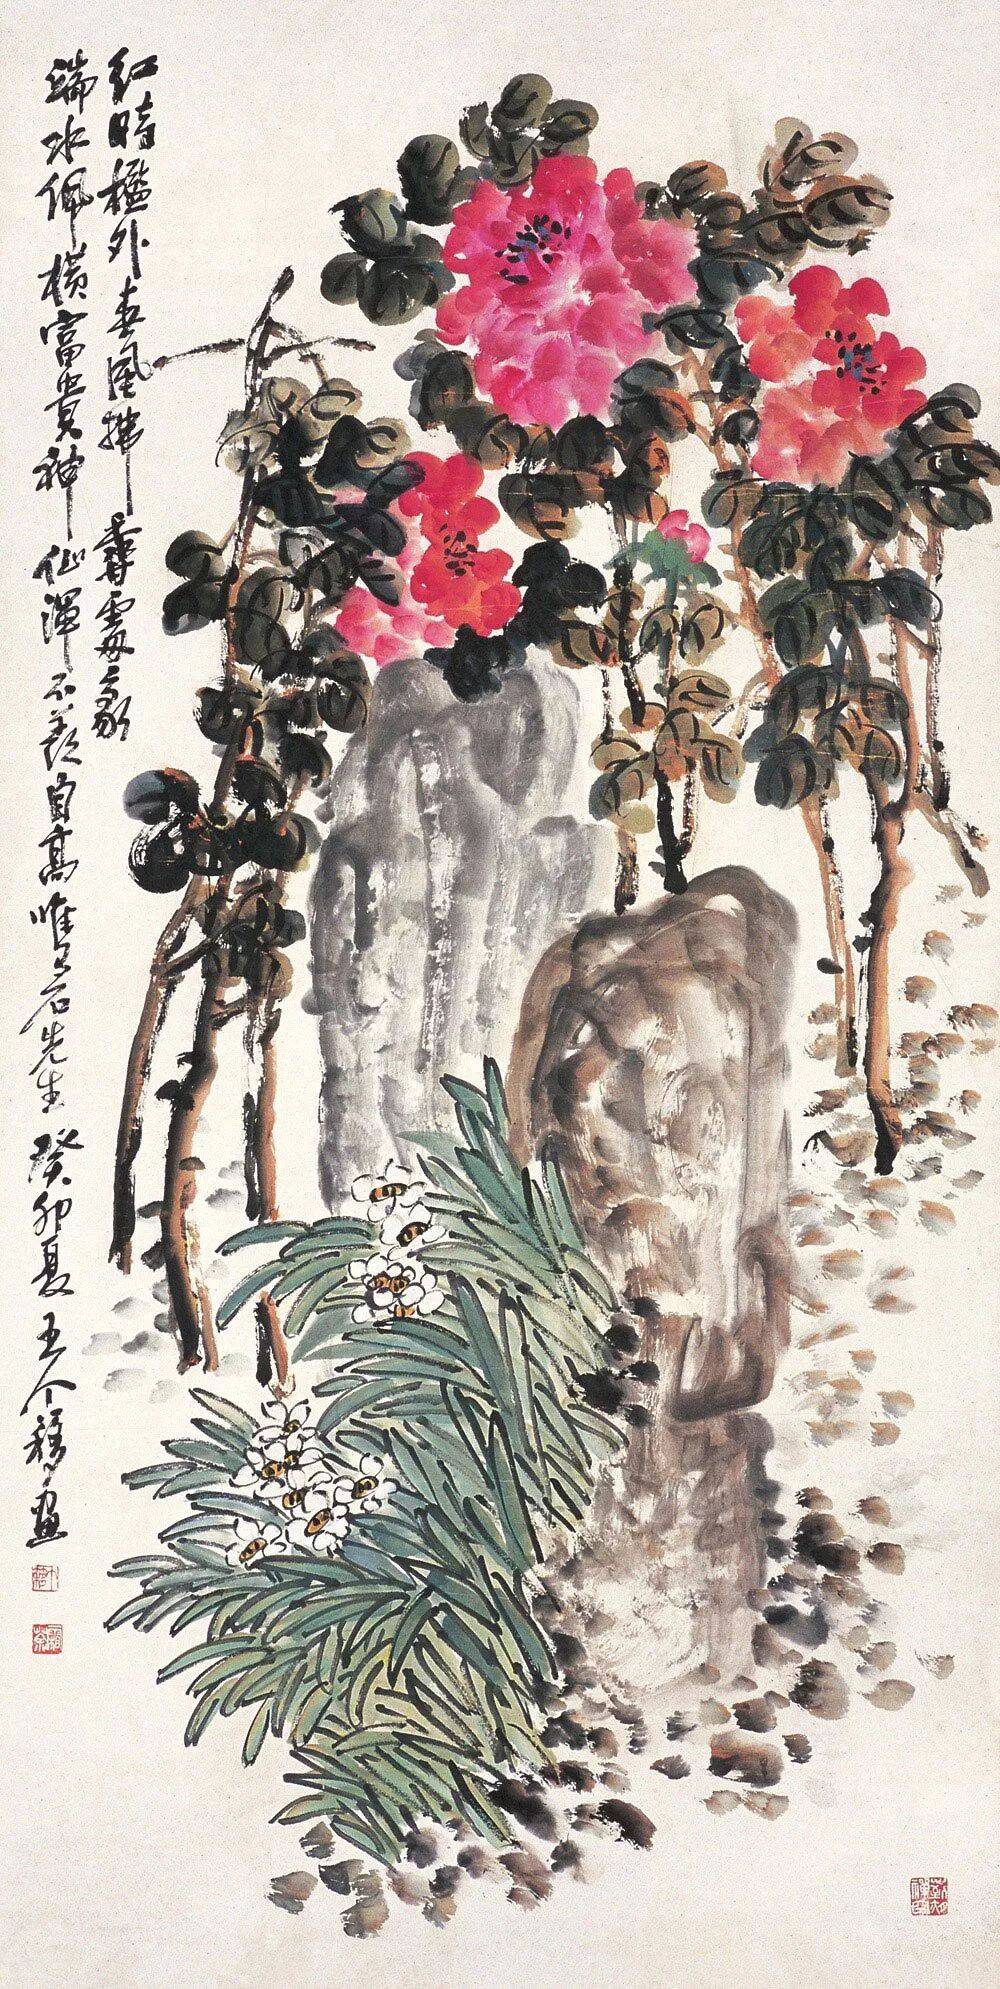 红暗槛外春风拂香霭豪
端水佩横富贵神仙浑不羡自高唯有石先生 癸卯夏 王个簃画